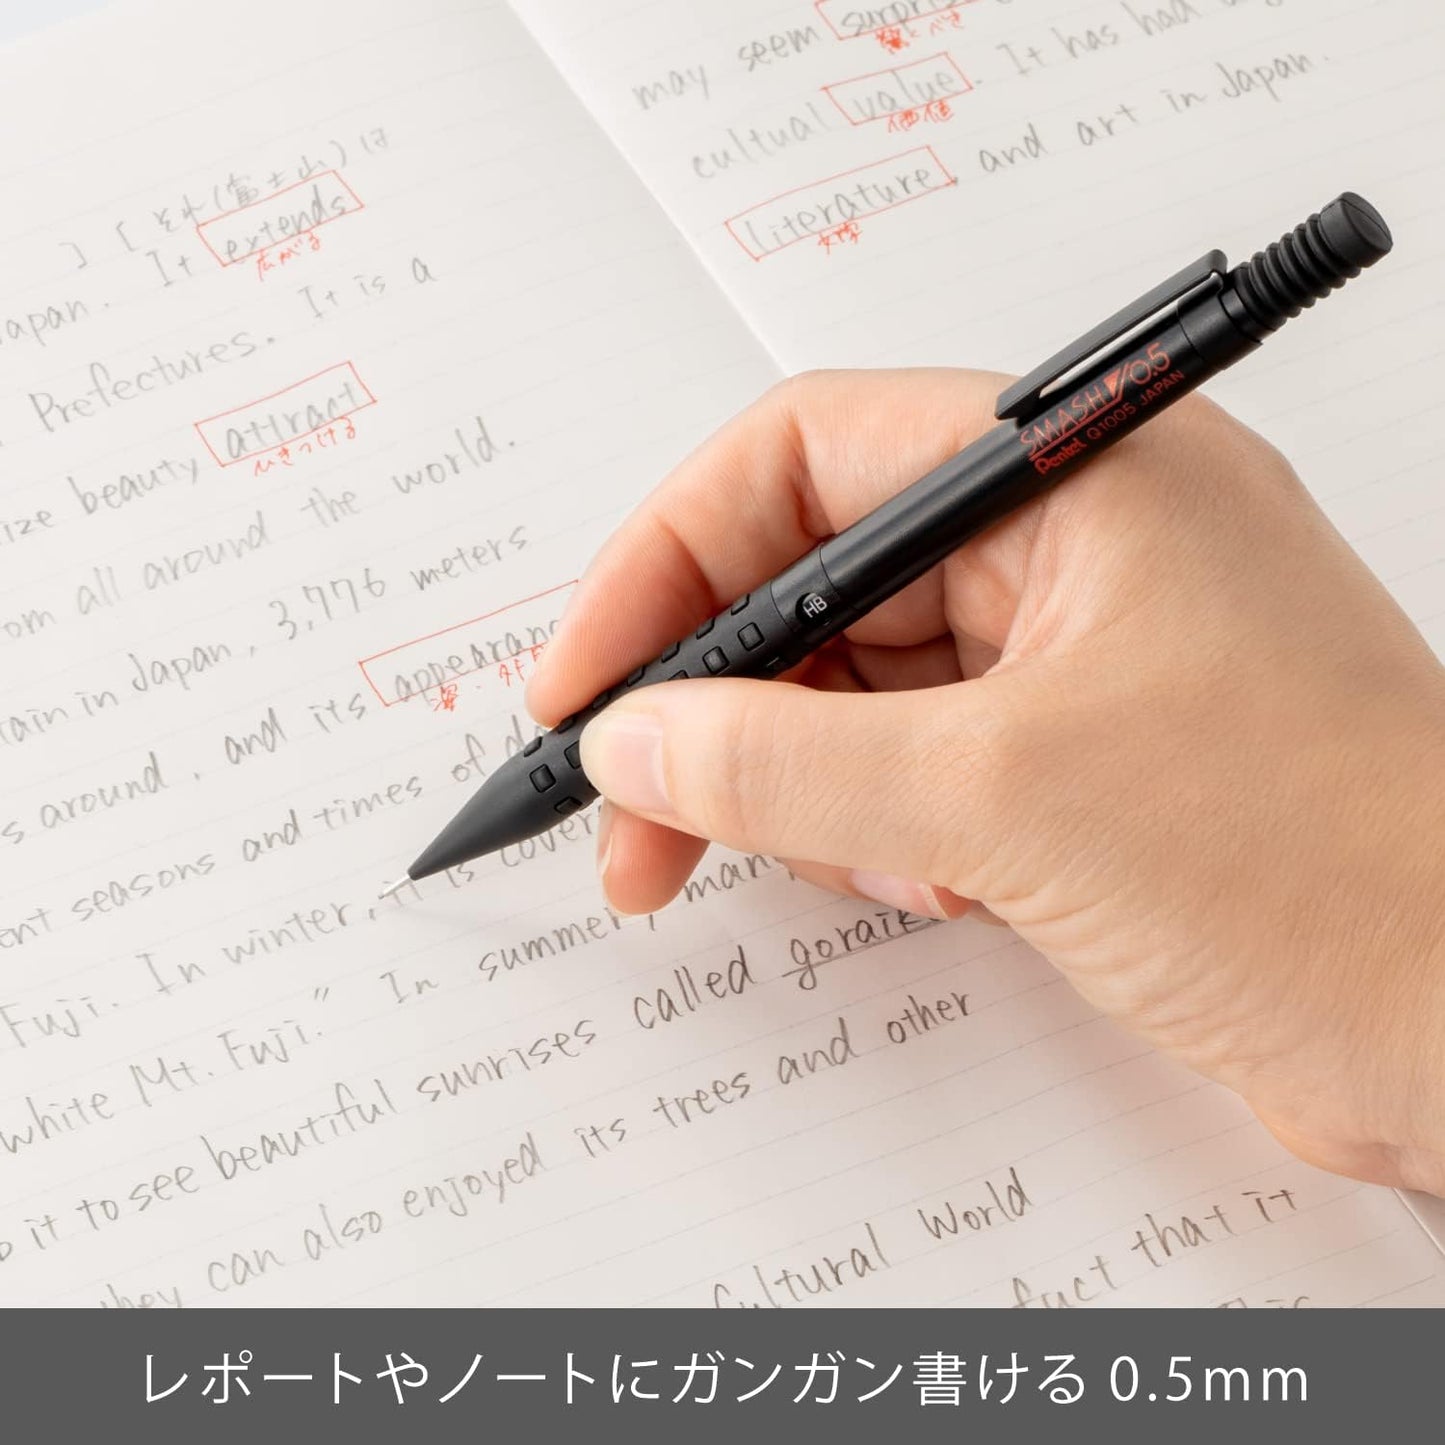 ] [ それ(富士山)は
Japan. It extends
広がる
Prefectures. It is a
size beauty attract
ひきつける
from all around the world.
tain in Japan, 3,776 meters
s around, and its appearanc
姿・外見
ent seasons and times of d
Fuji. In winter, it is cover
white Mt. Fuji." In summer, many
o it to see beautiful sunrises called goraiko
they can also enjoyed its trees and other
may seem surpris
驚くべき
cultual value. It has had
価値
literature, and art in Japan.
文学
Cultural World
fact that it
This
SMASH 0.5
Pentel Q1005 JAPAN
HB
レポートやノートにガンガン書ける 0.5mm